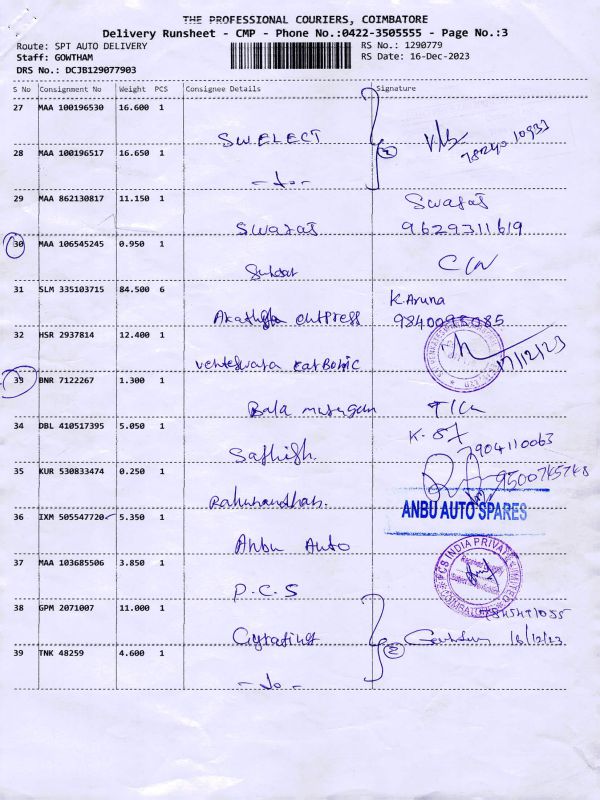 THE PROFESSIONAL COURIERS, COIMBATORE
Delivery Runsheet - CMP - Phone No.:0422-3505555 - Page No.:3
Route: SPT AUTO DELIVERY RS No.: 1290779
Staff: GOWTHAM RS Date: 16-Dec-2023
DRS No.: DCJB129077903
S No Consignment No Weight PCS Consignee Details Signature
27 MAA 100196530 16.600 1
SWELECT 78240 10933
28 MAA 100196517 16.650 1 2
-do-
29 MAA 862130817 11.150 1 Swarat
Swarat 9629311619
30 MAA 106545245 0.950 1
31 SLM 335103715 84.500 6 K.Aruna
9840095085
32 HSR 2937814 12.400 1 17/12/23
venteswara carbonic
33 BNR 7122267 1.300 1
Bala murugan
34 DBL 410517395 5.050 1 7904110063
Sathish
35 KUR 530833474 0.250 1
36 IXM 505547720 5.350 1 ANBU AUTO SPARES
Anbu Auto
37 MAA 103685506 3.850 1 PCS INDIA PRIVATE LIMITED COIMBATORE
P.C.S
38 GPM 2071007 11.000 1
2 16/12/23
39 TNK 48259 4.600 1
-do-